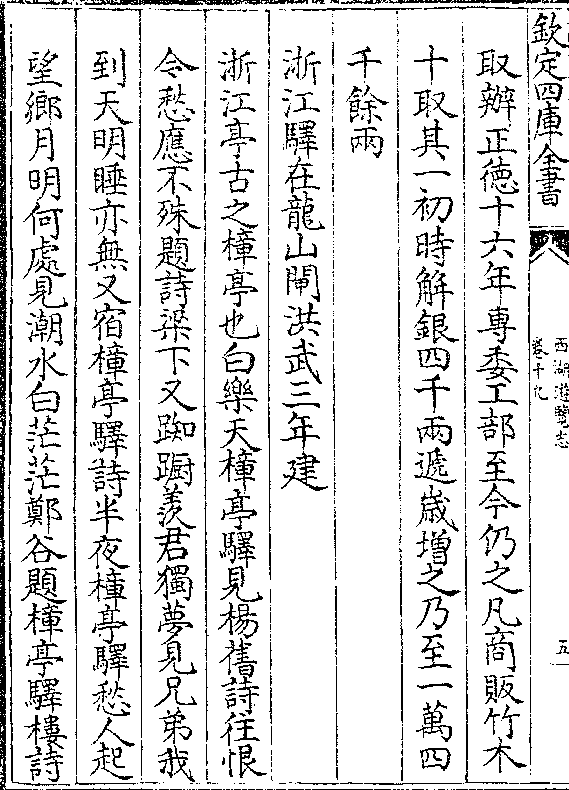 欽定四庫全書
西湖遊覽志
卷十九
五
取辦正德十六年專委工部至今仍之凡商販竹木
十取其一初時解銀四千兩遞歲增之乃至一萬四
千餘兩
浙江驛在龍山閘洪武三年建
浙江亭古之樟亭也白樂天樟亭驛見楊舊詩往恨
今愁應不殊題詩梁下又踟蹰羨君獨夢見兄弟我
到天明睡亦無又宿樟亭驛詩半夜樟亭驛愁人起
望鄉月明何處見潮水白茫茫鄭谷題樟亭驛樓詩